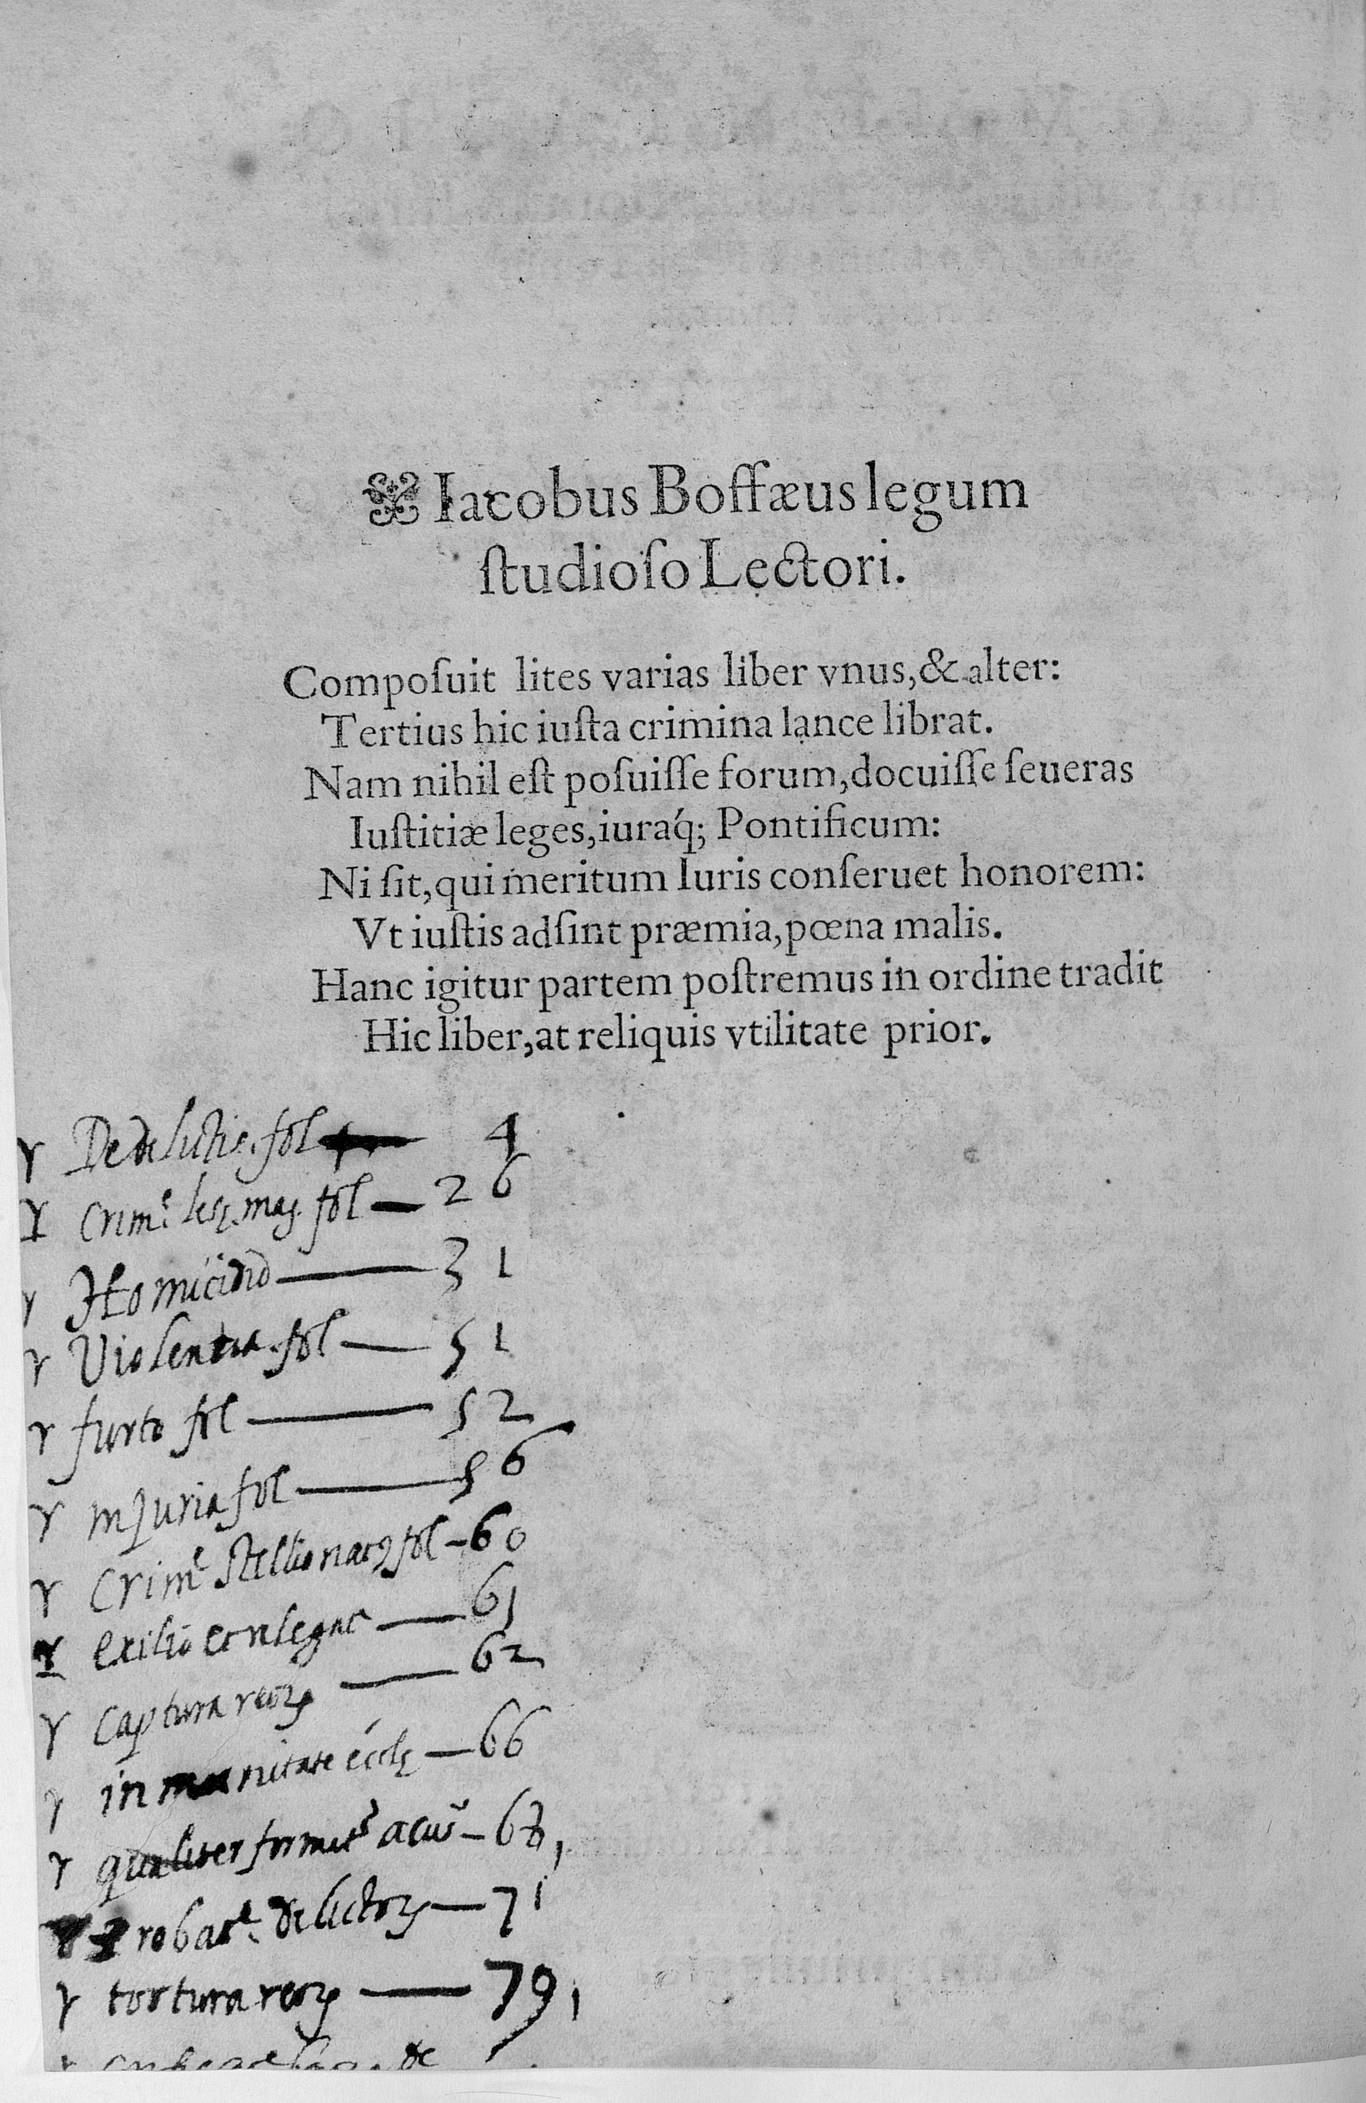 Iacobus Boſſæus legum
ſtudioſo Lectori.
Compoſuit lites varias liber vnus,& alter:
Tertius hic iuſta crimina lance librat.
Nam nihil eſt poſuiſſe forum,docuiſſe ſeueras
Iuſtitiæ leges,iuraq́; Pontificum:
Ni ſit,qui meritum Iuris conſeruet honorem:
Vt iuſtis adſint præmia,pœna malis.
Hanc igitur partem poſtremus in ordine tradit
Hic liber,at reliquis vtilitate prior.
De delictis. fol 4
Crimē lęsę. mag. fol 26
Homicidio 31
Violentia. fol 51
furto fol 52
injuria fol 56
Crimē stellionatꝰ fol 60
exilio et relegat 61
Captura reoꝝ 62
inmunitate eccłę 66
qualiter formet acus 68
Probatē. delictoꝝ 71
tortura reoꝝ 79